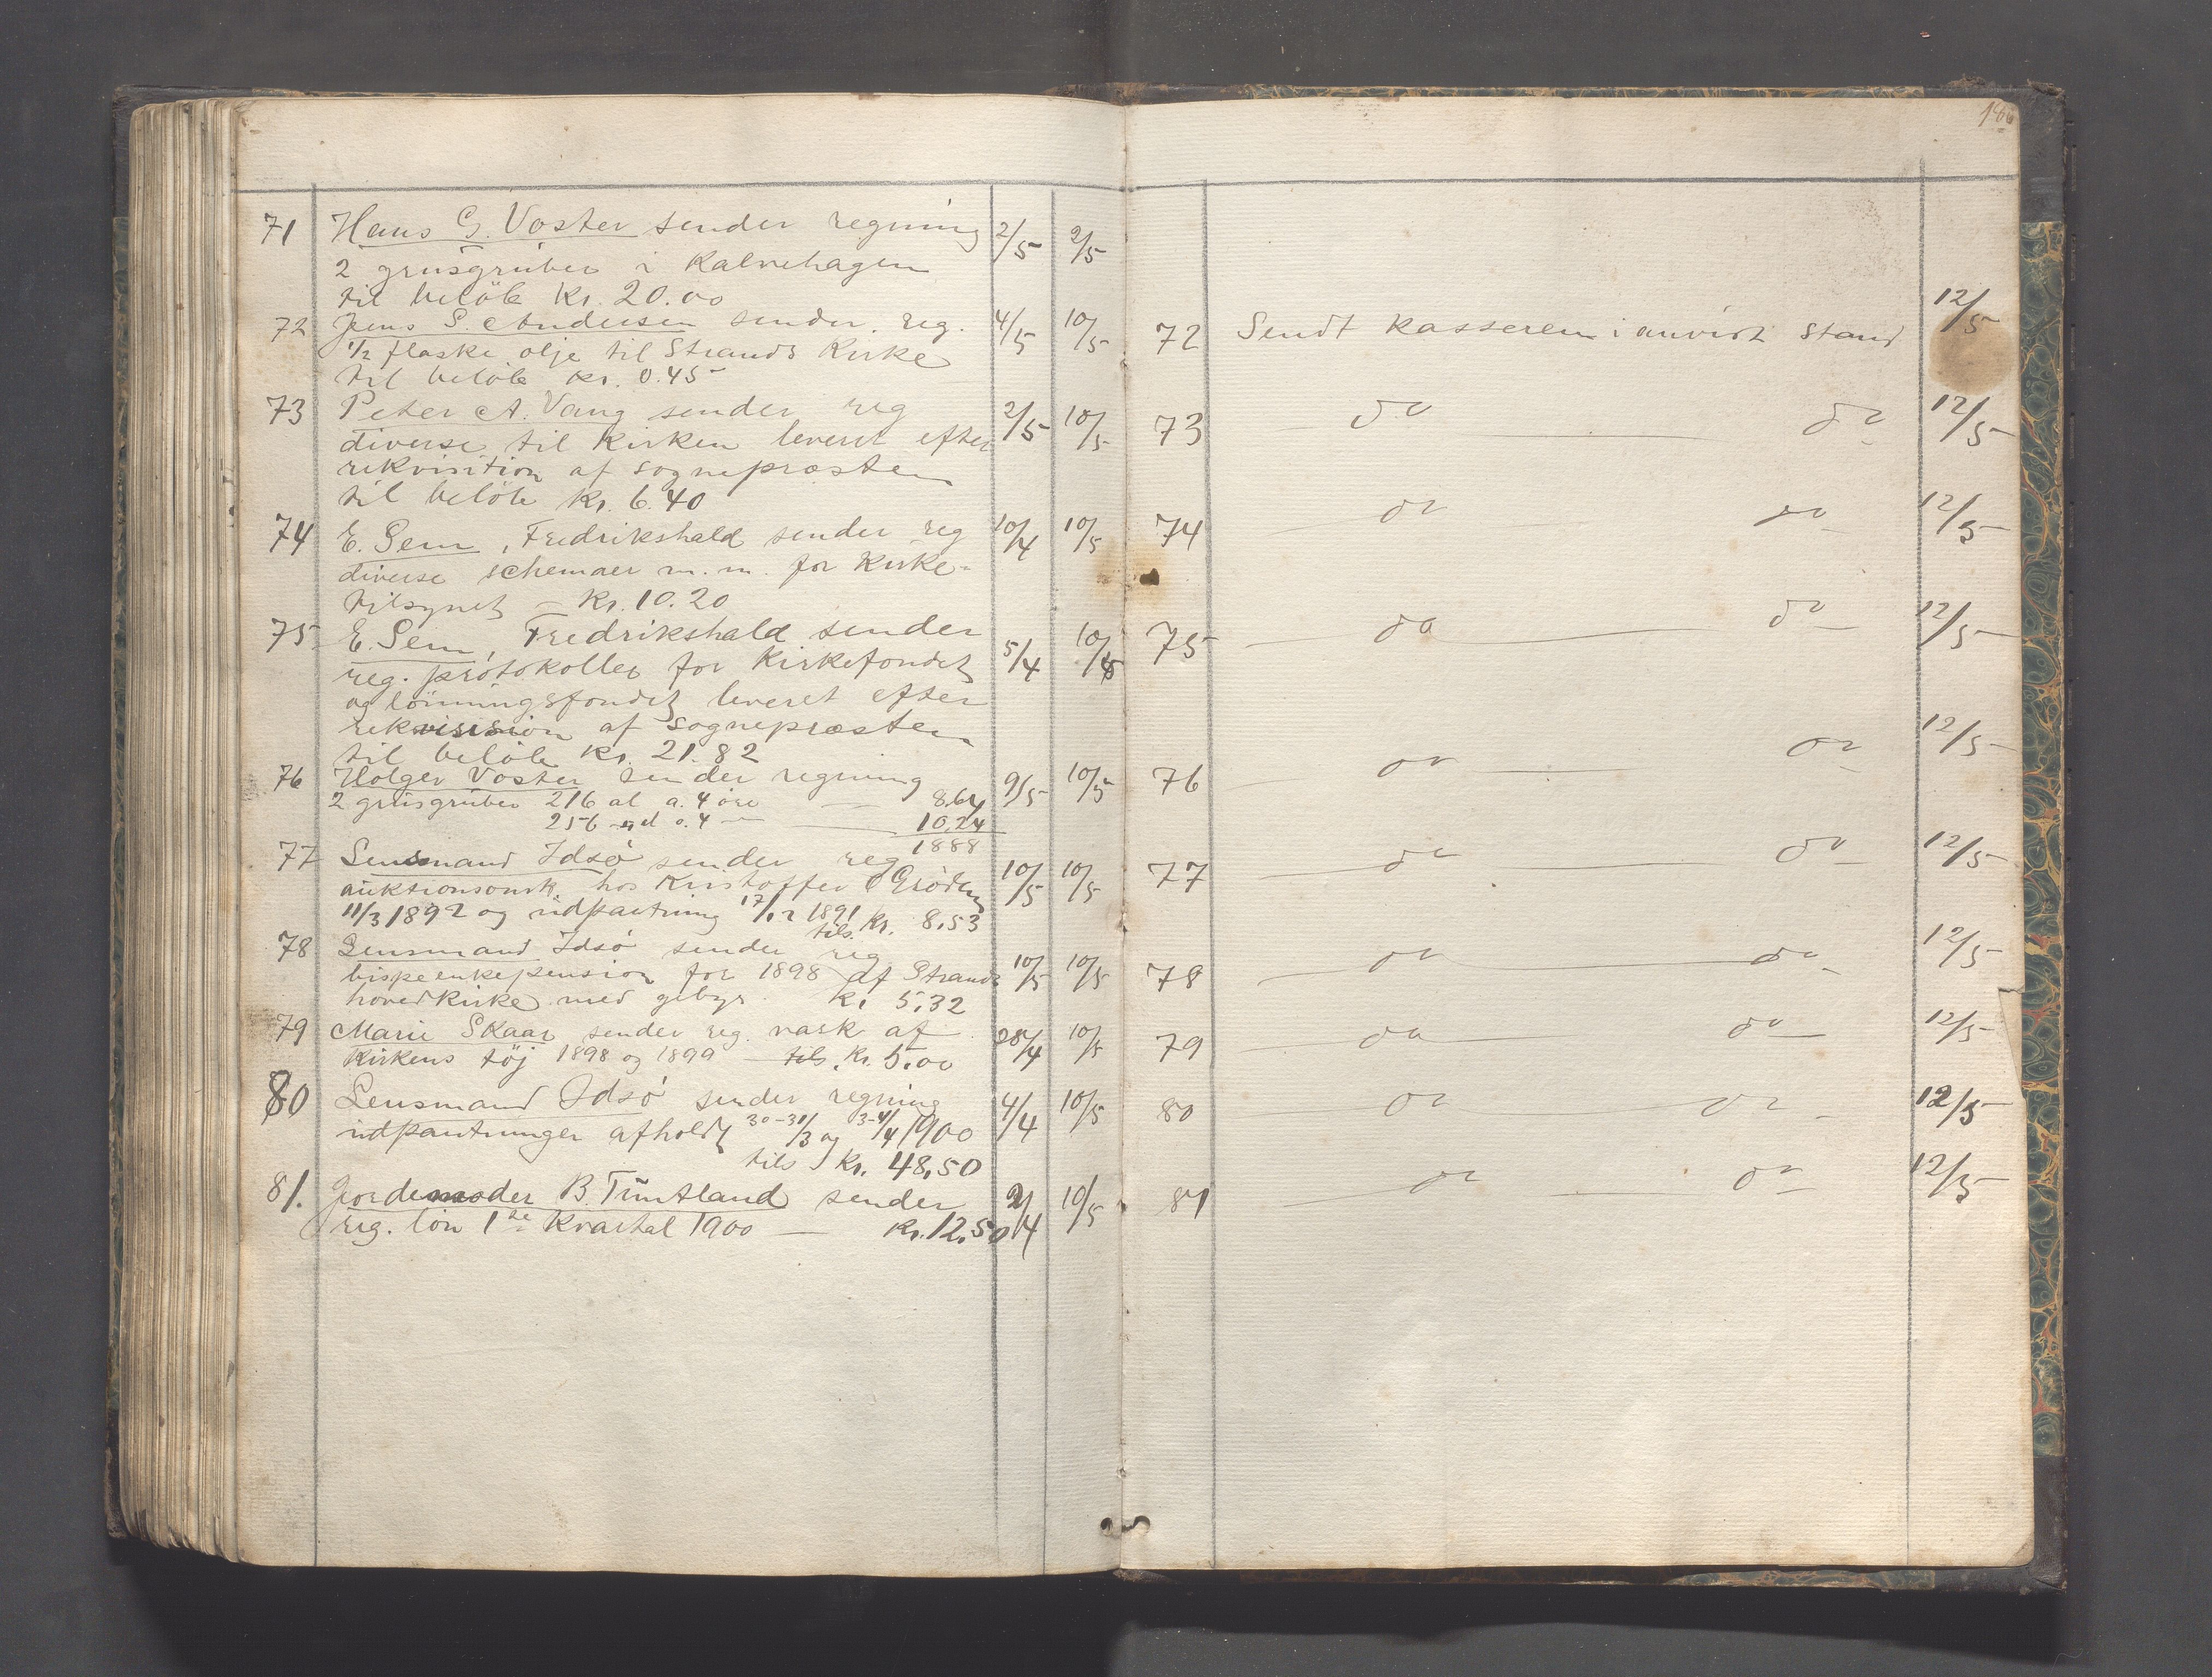 71 Hans G. Voster sender regning 2/5 2/5
2 grusgruber i Kalvehagen
til beløb Kr. 20.00
72 Jens S. Andersen sender reg. 4/5 10/5
1/2 flaske olje til Strands Kirke
til beløb kr. 0.45
73 Peter A. Vang sender reg 2/5 10/5
diverse til Kirken leveret efter
rekvisition af sognepræsten
til beløb Kr. 6.40
74 E. Sem, Fredrikshald sender reg 10/4 10/5
diverse schemaer m.m. for Kirke-
tilsynet — Kr. 10.20
75 E. Sem, Fredrikshald sender 5/4 10/5
reg. protokoller for Kirkefondet
og lönningsfondet leveret efter
rekvisision af sognepræsten
til beløb Kr. 21.82
76 Holger Voster sender regning 9/5 10/5
2 grusgruber 216 al a. 4 öre — 8.64
256 al a. 4 — — 10.24
1888
77 Lensmand Idsö sender reg 10/5 10/5
auktionsomk. hos Kristoffer Gröden
11/3 1892 og udpantning 17/12 1891
tils. Kr. 8.53
78 Lensmand Idsö sender reg 10/5 10/5
bispeenkepension for 1898 af Strands
hovedkirke med gebyr. Kr 5.32
79 Marie Skaar sender reg. vask af 28/4 10/5
Kirkens töj 1898 og 1899 — tils. Kr. 5.00
80 Lensmand Idsö sender regning 4/4 10/5
udpantninger afholdt 30-31/3 og 3-4/4 1900
tils Kr. 48,50
81. Jordemoder B. Tuntland sender 2/4 10/5
reg. lön 1ste Kvartal 1900 — Kr. 12.50
146
72 Sendt kassereren i anvist stand 12/5
73 — do — do 12/5
74 — do — do 12/5
75 — do — do 12/5
76 — do — do 12/5
77 — do — do 12/5
78 — do — do 12/5
79 — do — do 12/5
80 do — do 12/5
81 — do — do 12/5